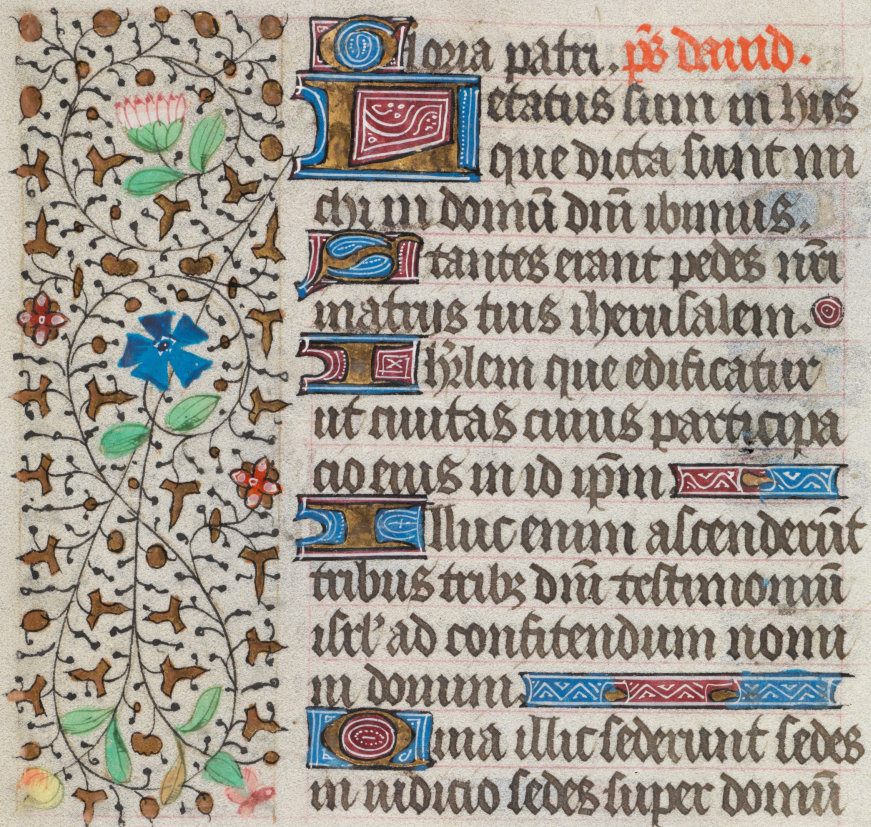 Gloria patri. p̃s dauid.
Letatus sum in hijs
que dicta sunt mi
chi in domū dñi ibimus.
Stantes erant pedes nr̃i
in atrijs tuis iherusalem.
Ihrl̃em que edificatur
ut ciuitas cuius participa
cio eius in id ip̃m
Illuc enim ascenderūt
tribus tribꝫ dñi testimoniū
isrl’ ad confitendum nomi
ni domini.
Quia illic sederunt sedes
in iudicio sedes super domū